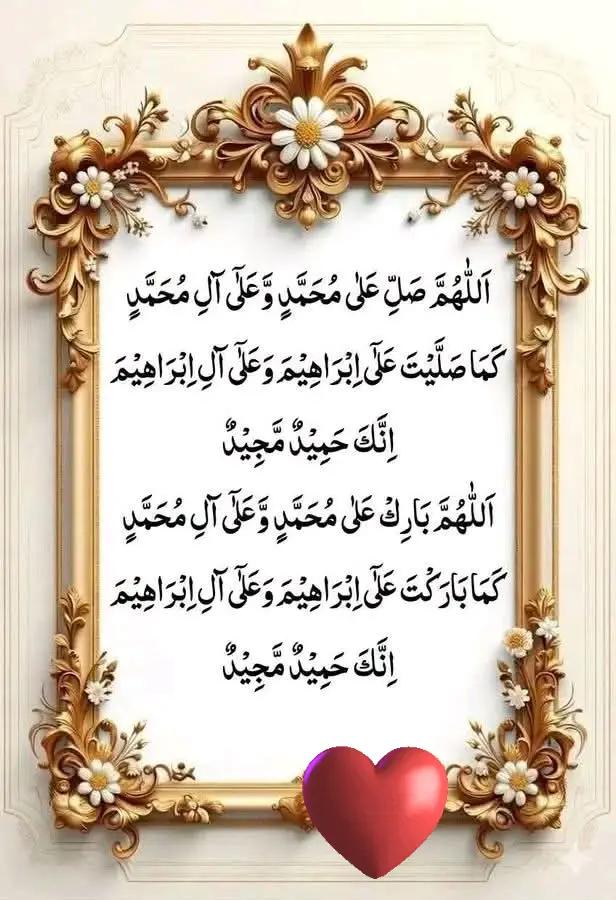 اَللّٰهُمَّ صَلِّ عَلٰى مُحَمَّدٍ وَّعَلٰٓى آلِ مُحَمَّدٍ
كَمَا صَلَّيْتَ عَلٰٓى اِبْرَاهِيْمَ وَعَلٰٓى آلِ اِبْرَاهِيْمَ
اِنَّكَ حَمِيْدٌ مَّجِيْدٌ
اَللّٰهُمَّ بَارِكْ عَلٰى مُحَمَّدٍ وَّعَلٰٓى آلِ مُحَمَّدٍ
كَمَا بَارَكْتَ عَلٰٓى اِبْرَاهِيْمَ وَعَلٰٓى آلِ اِبْرَاهِيْمَ
اِنَّكَ حَمِيْدٌ مَّجِيْدٌ